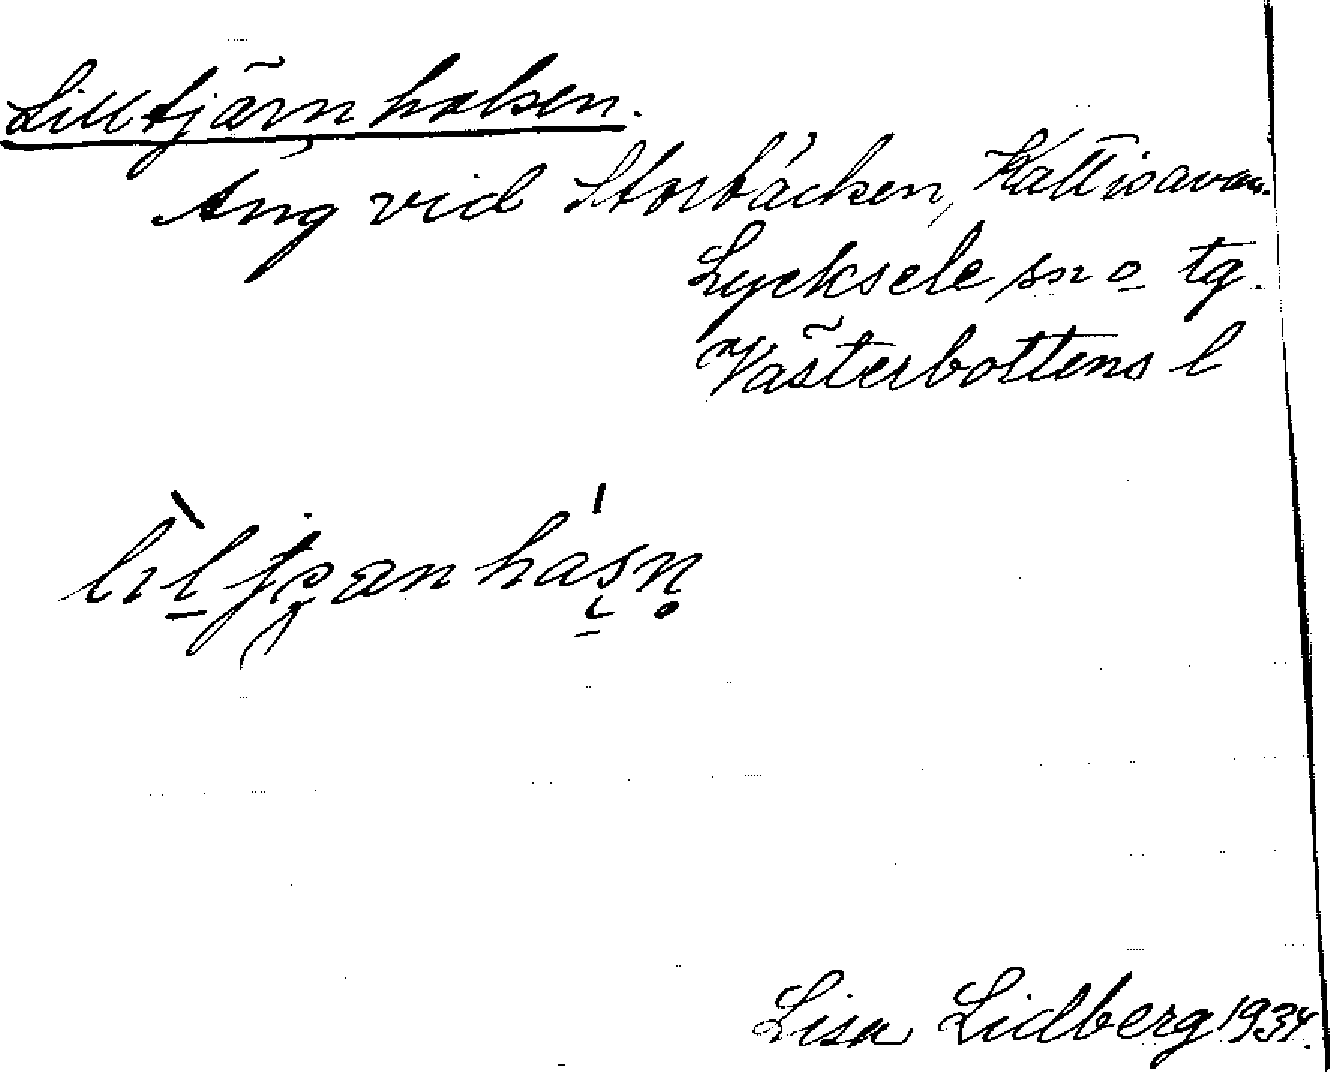 Lilltjärnhalsen.
Äng vid Storbäcken, Kattisavan.
Lycksele sn o tg.
Västerbottens l
Lisa Lidberg 1934.